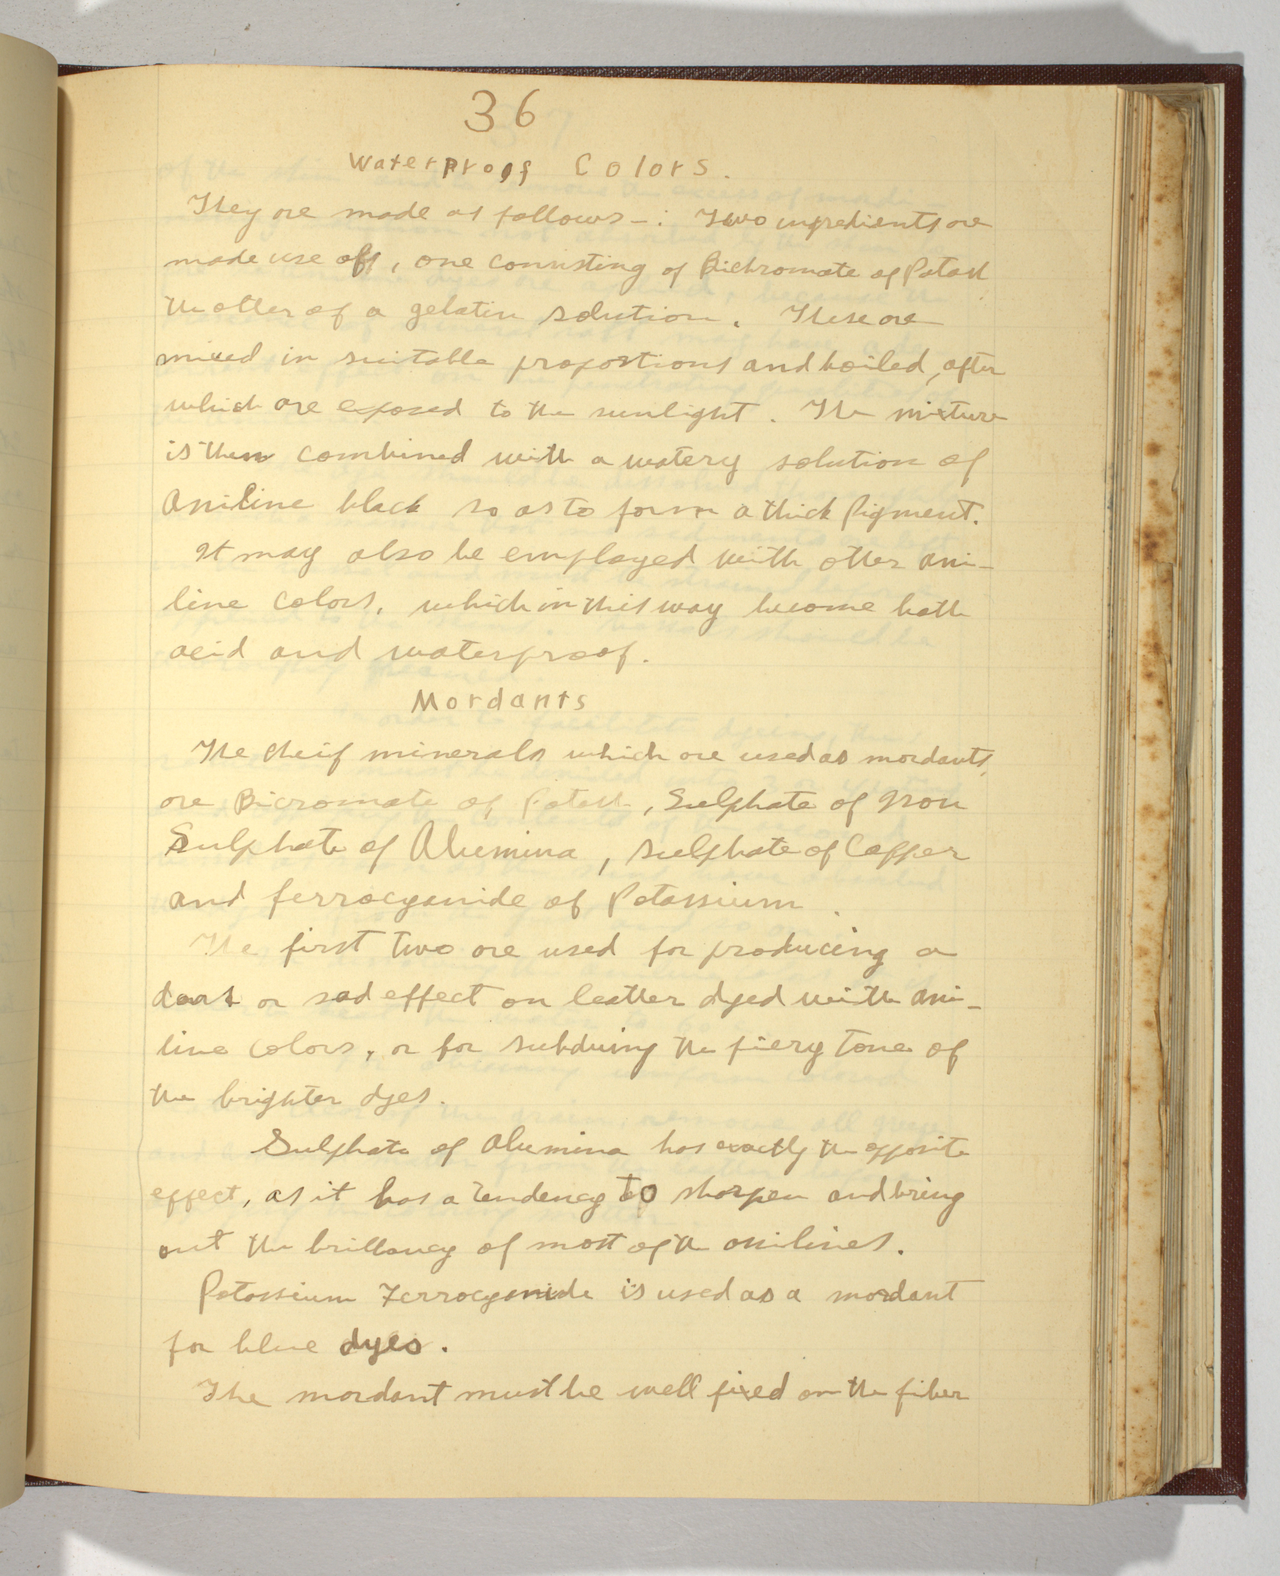 36
Waterproof Colors.
They are made as follows-: Two ingredients are
made use off, one consisting of Bichromate of Potash
the other of a gelatin solution. These are
mixed in suitable proportions and boiled, after
which are exposed to the sunlight. The mixture
is then combined with a watery solution of
Aniline black so as to form a thick Pigment.
It may also be employed with other ani-
line colors, which in this way become both
acid and waterproof.
Mordants
The cheif minerals which are used as mordants,
are Bicromate of Potash, Sulphate of Iron
Sulphate of Alumina, Sulphate of Copper
and ferrocyanide of Potassium.
The first two are used for producing a
dark or sad effect on leather dyed with ani-
line colors, or for subduing the fiery tone of
the brighter dyes.
Sulphate of Alumina has exactly the opposite
effect, as it has a tendency to sharpen and bring
out the brillancy of most of the anilines.
Potassium Ferrocyanide is used as a mordant
for blue dyes.
The mordant must be well fixed on the fiber